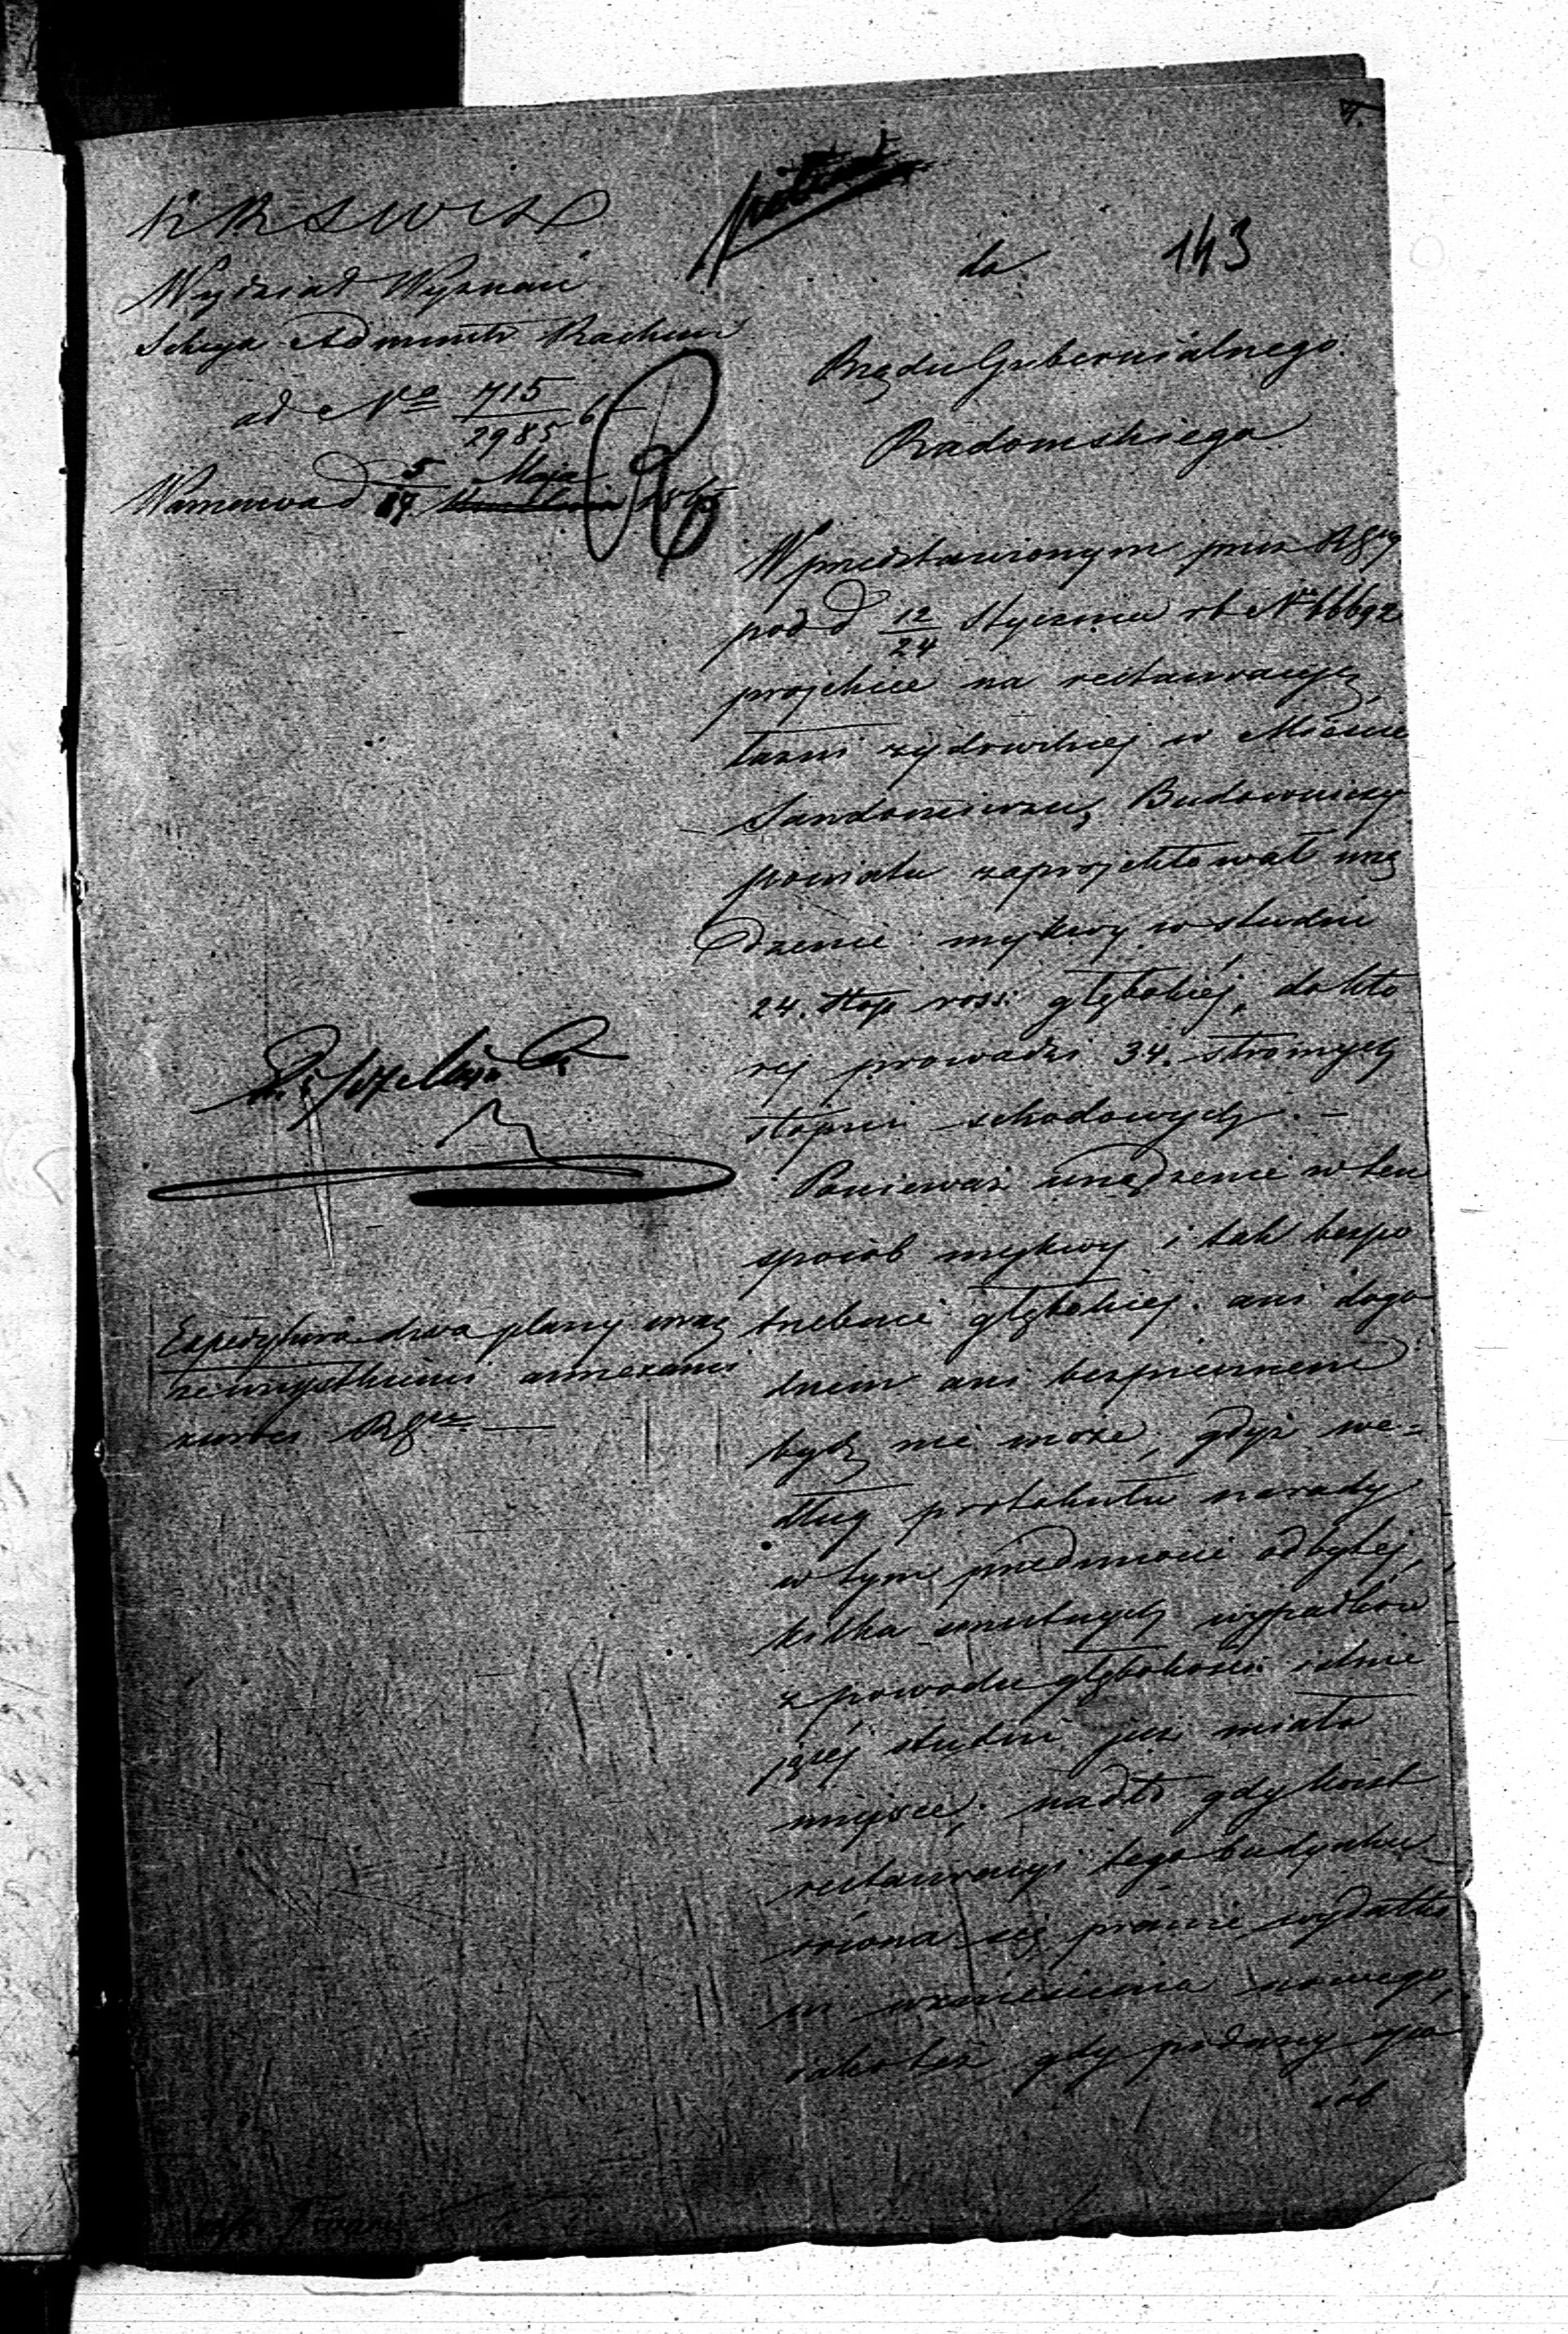 KRSWiD
pilno
Wydział Wyznań
Sekcya Administr Rachun
ad No 715/2985 6
Warszawa d 5/17 Maja 186
do
143
Rządu Gubernialnego
Radomskiego
W przedstawionym przez RGny
pod d 12/24 Stycznia rb No 66692
projekcie na restauracyę
łazni zydowskiej w Mieście
Sandomierzu, Budowniczy
powiatu zaprojektował urzą
dzenie mykwy w studni
24. stop ross: głębokiéj, do któ
rej prowadzi 34. stromych
stopni schodowych. –
Ponieważ urządzenie w ten
sposób mykwy i tak bezpo
trzebnie głębokiej ani dogo
dnem ani bezpiecznem
być nie może, gdyż we=
dług protokułu narady
w tym przedmiocie odbytej,
kilka smutnych wypadków
z powodu głębokości istnie
jącéj studni już miało
miejsce; nadto gdy koszt
restauracyi tego budynku
równa się prawie wydatko
wi wzniesienia nowego,
jako też gdy podany spo
sób
Expedytura dwa plany wraz
ze wszystkiemi annexami
zwróci RGr